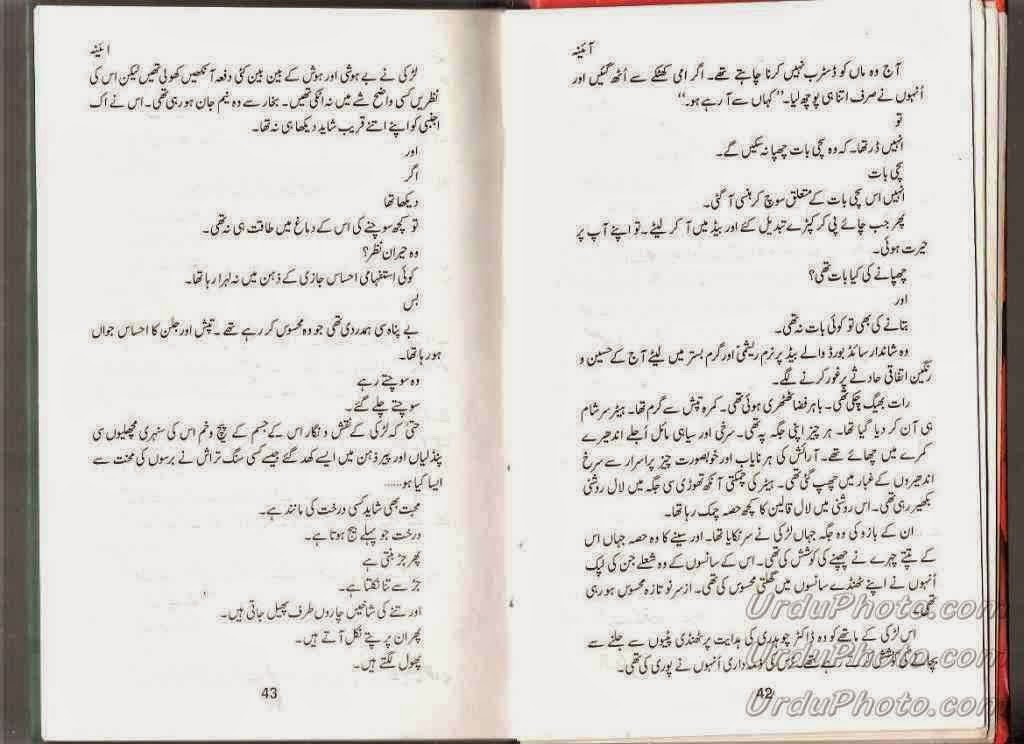 آئینہ
آج وہ ماں کو ڈسٹرب نہیں کرنا چاہتے تھے۔ اگر امی کھٹکے سے اُٹھ گئیں اور
اُنہوں نے صرف اتنا ہی پوچھ لیا۔ ''کہاں سے آ رہے ہو۔''
تو
انہیں ڈر تھا۔ کہ وہ سچی بات چھپا نہ سکیں گے۔
سچی بات
انہیں اس سچی بات کے متعلق سوچ کر ہنسی آ گئی۔
پھر جب چائے پی کر کپڑے تبدیل کئے اور بیڈ میں آ کر لیٹے۔ تو اپنے آپ پر
حیرت ہوئی۔
چھپانے کی کیا بات تھی؟
اور
بتانے کی بھی تو کوئی بات نہ تھی۔
وہ شاندار سائڈ بورڈ والے بیڈ پر نرم ریشمی اور گرم بستر میں لیٹے آج کے حسین و
رنگین اتفاقی حادثے پر غور کرنے لگے۔
رات بھیگ چکی تھی۔ باہر فضا ٹھٹھری ہوئی تھی۔ کمرہ تپش سے گرم تھا۔ ہیٹر سر شام
ہی آن کر دیا گیا تھا۔ ہر چیز اپنی جگہ پہ تھی۔ سرخی اور سیاہی مائل اُجلے اندھیرے
کمرے میں چھائے تھے۔ آرائش کی ہر نایاب اور خوبصورت چیز پراسرار سے سرخ
اندھیروں کے غبار میں چھپ گئی تھی۔ ہیٹر کی چمکتی آنکھ تھوڑی سی جگہ میں لال روشنی
بکھیر رہی تھی۔ اس روشنی میں لال قالین کا کچھ حصہ چمک رہا تھا۔
ان کے بازو کی وہ جگہ جہاں لڑکی نے سر ٹکایا تھا۔ اور سینے کا وہ حصہ جہاں اس
کے تپتے چہرے نے چھپنے کی کوشش کی تھی۔ اس کے سانسوں کے وہ شعلے جن کی لپک
اُنہوں نے اپنے ٹھنڈے سانسوں میں گھلتی محسوس کی تھی۔ از سر نو تازہ محسوس ہو رہی
تھی۔
اس لڑکی کے ماتھے کو وہ ڈاکٹر چوہدری کی ہدایت پر ٹھنڈی پٹیوں سے جلنے سے
بچانے کی کوشش کرتے رہے تھے۔ نرس کی ذمہ داری اُنہوں نے پوری کی تھی۔
42
آئینہ
لڑکی نے بے ہوشی اور ہوش کے بین بین کئی دفعہ آنکھیں کھولی تھیں لیکن اس کی
نظریں کسی واضح شے میں نہ اٹکی تھیں۔ بخار سے وہ نیم جان ہو رہی تھی۔ اس نے اک
اجنبی کو اپنے اتنے قریب شاید دیکھا ہی نہ تھا۔
اور
اگر
دیکھا تھا
تو کچھ سوچنے کی اس کے دماغ میں طاقت ہی نہ تھی۔
وہ حیران نظر؟
کوئی استفہامی احساس جازی کے ذہن میں نہ لہرا رہا تھا۔
بس
بے پناہ سی ہمدردی تھی جو وہ محسوس کر رہے تھے۔ تپش اور جلن کا احساس جواں
ہو رہا تھا۔
وہ سوچتے رہے
سوچتے چلے گئے۔
حتیٰ کہ لڑکی کے نقش و نگار اس کے جسم کے پیچ و خم اس کی سنہری مچھلیوں سی
پنڈلیاں اور پیر ذہن میں ایسے کھد گئے جیسے کسی سنگ تراش نے برسوں کی محنت سے
ایسا کیا ہو......
محبت بھی شاید کسی درخت کی مانند ہے۔
درخت جو پہلے بیج ہوتا ہے۔
پھر جڑ بنتی ہے
جڑ سے تنا نکلتا ہے۔
اور تنے کی شاخیں چاروں طرف پھیل جاتی ہیں۔
پھر ان پر پتے نکل آتے ہیں۔
پھول لگتے ہیں۔
43
UrduPhoto.com
UrduPhoto.com
UrduPhoto.com